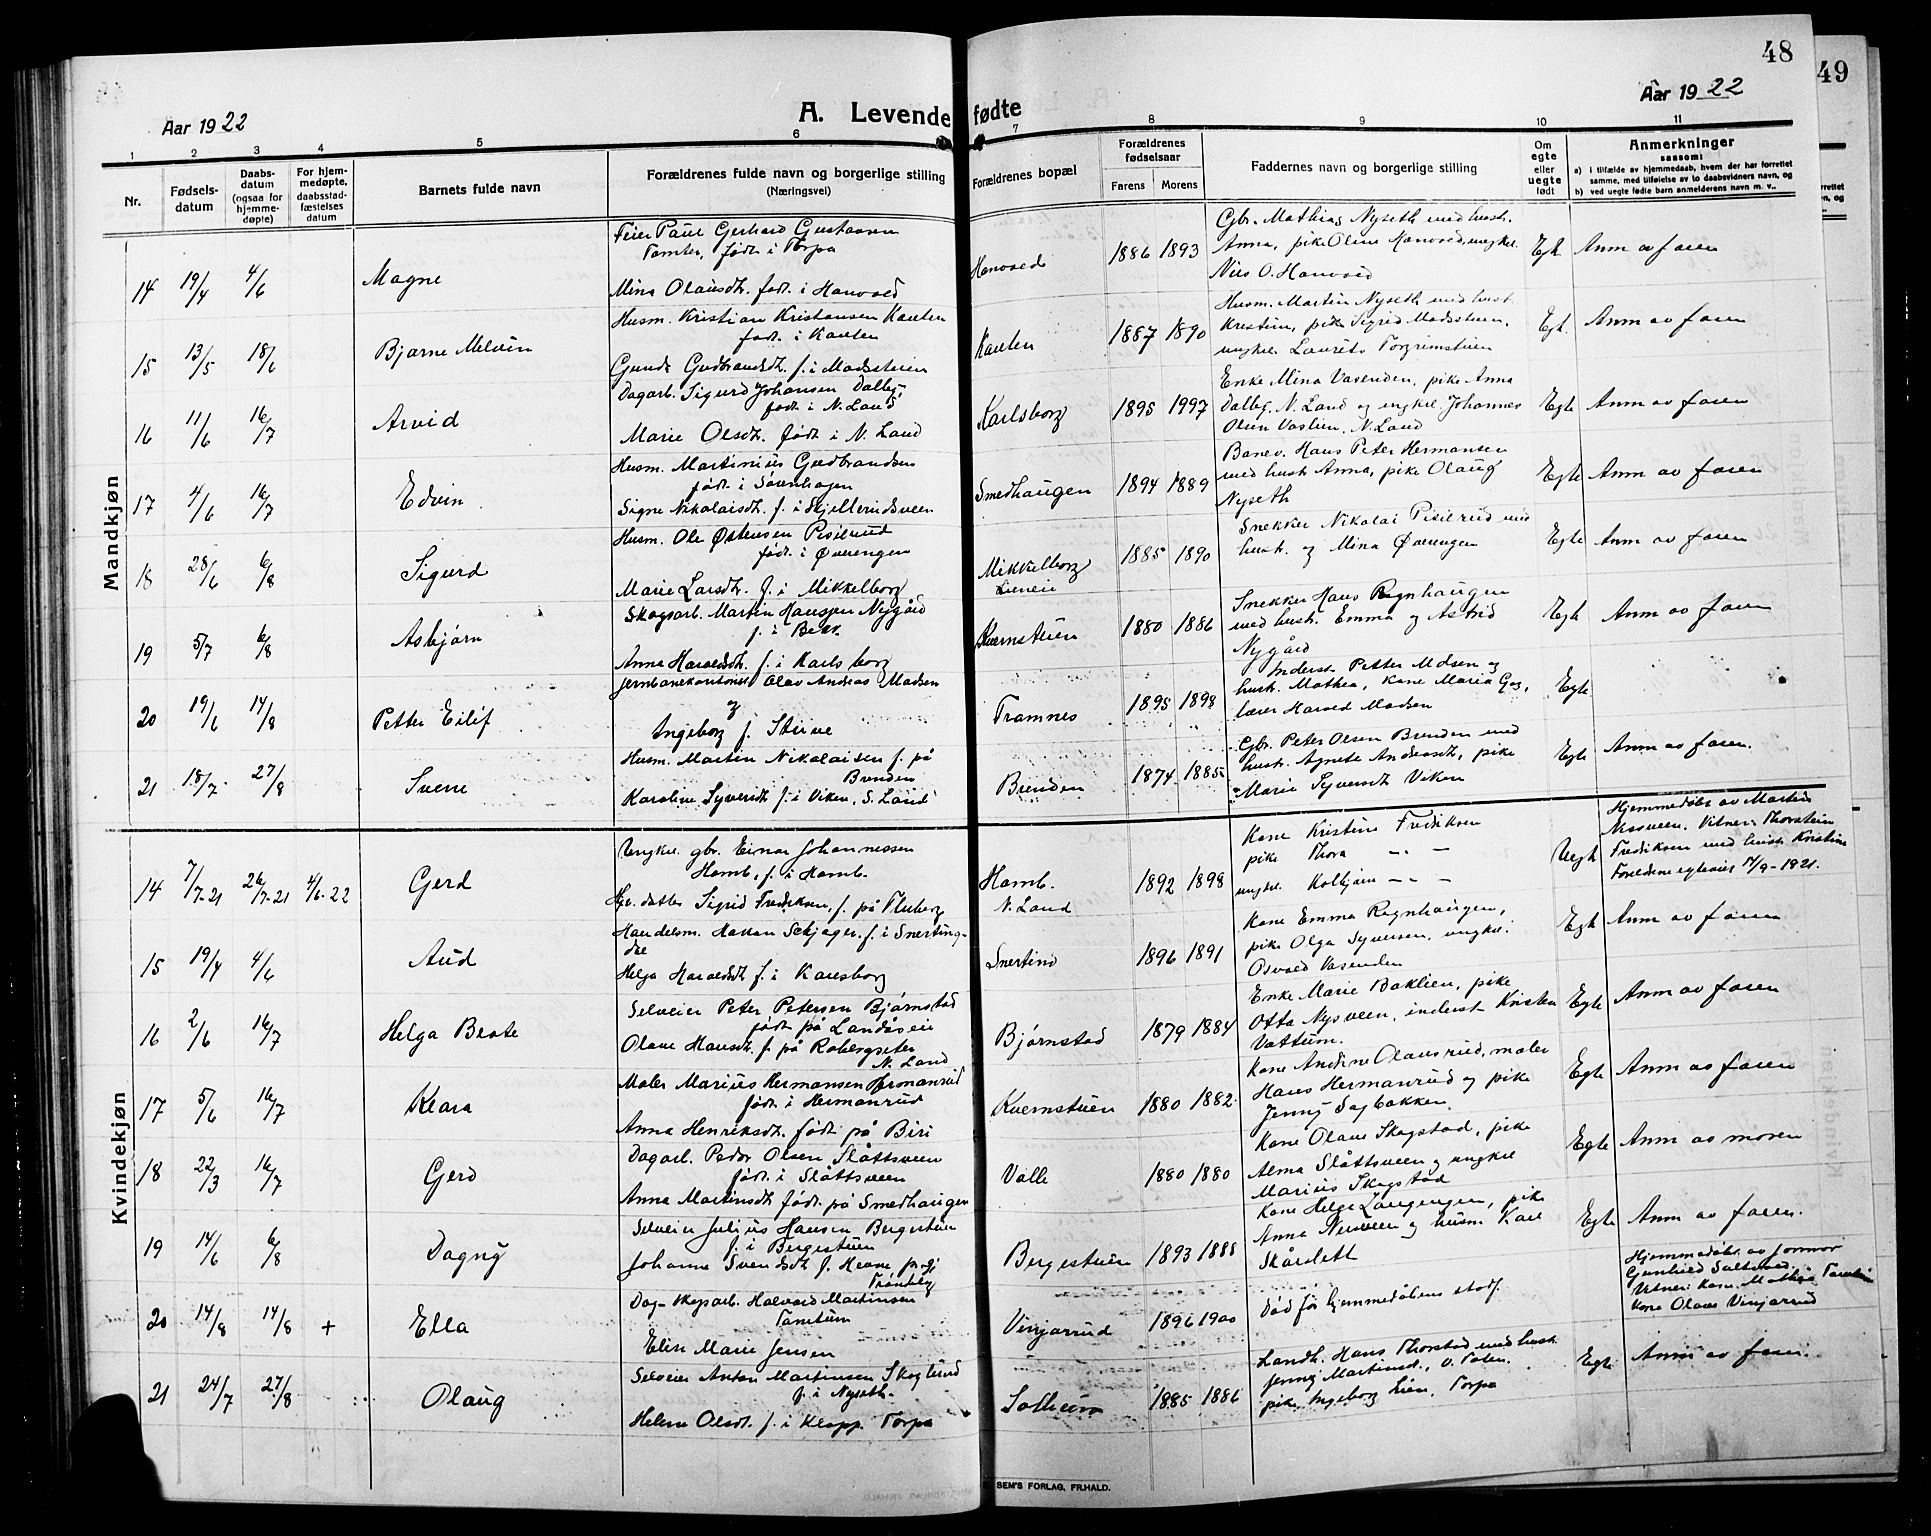 48
49
Aar 1922
A. Levende fødte
Aar 1922
1 2 3 4 5 6 7 8 9 10 11
Nr.
Fødselsdatum
Daabsdatum (ogsaa for hjemmedøpte)
For hjemmedøpte, daabsstadfæstelses datum
Barnets fulde navn
Forældrenes fulde navn og borgerlige stilling
(Næringsvei)
Forældrenes bopæl
Forældrenes fødselsaar
Farens Morens
Faddernes navn og borgerlige stilling
Om egte eller uegte født
Anmerkninger
saasom:
a) i tilfælde av hjemmedaab, hvem der har forrettet samme, med tilføielse av to daabsvidners navn, og
b) ved uegte fødte barn anmelderens navn m. v..
Mandkjøn
14 19/4 4/6 Magne
Feier Paul Gerhard Gustavsen
Tomter, født i Torpa
Mina Olausdt. født i Hanvold
1886 1893
Gbr. Mathias Nyseth med hust.
Anna, pike Oline Hanvold, ungkar
Nils O. Hanvold
Anm av faren
15 13/5 18/6 Bjarne Melvin
Husm. Kristian Kristiansen Kauten
født i Kauten
Gunda Gudbrandsdt. f. i Madsstuen
Kauten 1887 1890
Husm. Martin Nyseth med hust.
Kristine, pike Sigrid Madsstuen,
ungkar Laurits Torgrimstuen
Egt. Anm av faren
16 11/6 16/7 Arvid
Dagarb. Sigurd Johansen Dalby,
født i N. Land
Marie Olsdt. født i N. Land
Karlsborg 1895 1997
Enke Mina Vasenden, pike Anna
Dalby, N. Land og ungkar Johannes
Olsen Vaslien, N. Land
Egte Anm av faren
17 4/6 16/7 Edvin
Husm. Martinius Gudbrandsen
født i Søvenhagen
Signe Nikolaisdt. f. i Skjellerudsveen
Smedhaugen 1894 1889
Banev. Hans Peter Hermansen
med hust. Anna, pike Olaug
Nyseth
Egte Anm av faren
18 28/6 6/8 Sigurd
Husm. Ole Østensen Pisilrud
født i Øverengen
Marie Larsdt. f. i Mikkelborg
Mikkelborg
1885 1890
Snekker Nikolai Pisilrud med
hust. og Mina Øverengen
Egte Anm av faren
19 5/7 6/8 Asbjørn
Skogsarb. Martin Hansen Nygård
Anna Haraldsdt. f. i Karlsborg
Kvernstuen 1880 1886
Snekker Hans Rognhaugen
med hust. Emma og Astrid
Nygård
Egte Anm av faren
20 19/6 14/8 Petter Eilif
Jernbanekontorist Olav Andreas Madsen
og
Ingeborg f. Stuve
Framnes 1895 1898
Inderst Petter Madsen og
hust. Mathea, Kone Maria
lærer Harald Madsen
Egte
21 18/7 27/8 Sverre
Husm. Martin Nikolaisen f. på
Brenden
Karoline Syversdt f. i Viken, S. Land
Brenden 1874 1885
Gbr. Peter Olsen Brenden med
hust. Agnete Andreasdt., pike
Marie Syversdt Viken
Egte Anm av faren.
Kvindekjøn
14 7/7-21 26/7-21 4/6-22 Gerd
Ungkar gbr. Einar Johannessen
Homb, f. i Homb.
Gbr. datter Sigrid Fredriksen, f. på Fluberg
Homb.
N. Land
1892 1898
Kone Kristine Fredriksen
pike Thora -"- -
ungkar Kolbjørn -"- -
Uegt
Hjemmedøbt av Martin
Nysveen. Vitner: Thorstein
Fredriksen med hust. Kristine
Foreldrene egteviet 17/9-1921.
15 19/4 4/6 Aud
Handelsm. Håkon Sebjager, f. i Snertingdal
Helga Haraldsdt f. i Karlsborg
1896 1891
Kone Emma Rognhaugen,
pike Olga Syversen, ungkar
Osvald Vasenden
Egt Anm av faren
16 2/6 16/7 Helga Beate
Selveier Peter Petersen Bjørnstad
født på Landåseie
Olave Hansdt. f. på Robergseter
N. Land
Bjørnstad 1879 1884
Enke Marie Baklien, pike
Otta Nysveen, inderst Kristen
Vattum.
Egte Anm av faren
17 5/6 16/7 Klara
Maler Marius Hermansen Hermanrud
født i Hermanrud
Anna Henriksdt. født på Biri
Kvernstuen 1880 1882
Kone Andine Olausrud, maler
Hans Hermanrud og pike
Jenny Sagbakken
Egte Anm av faren
18 22/3 16/7 Gerd
Dagarb. Peder Olsen Slåttsveen
født i Slåttsveen
Anna Martinsdt født på Smedhaugen
Valle 1880 1880
Kone Olave Skogstad, pike
Alma Slåttsveen og ungkar
Marius Skogstad
Egte Anm av moren
19 14/6 6/8 Dagny
Selveier Julius Hansen Bergestuen
f. i Bergestuen
Johanne Svendsdt f.
Bergestuen 1893 1888
Kone Helga Langengen, pike
Anna Nysveen og husm Karl
Skårslett
Egte Anm av faren.
20 14/8 14/8 + Ella
Dag- skogsarb. Halvard Martinsen
Tomtum
Elise Marie Jensen
Vinjarrud 1896 1900
Død før hjemmedåbens stadf.
Hjemmedøbt av formor
Vitner: Kone Mathea
Kone Olave Vinjarrud
21 24/7 27/8 Olaug
Selveier Anton Martinsen Skoglund
f. i Nyseth.
Helene Olsdt. f. i Klopp. Torpa
1885 1886
Landh. Hans Thorstad med hust.
Jenny Martinsdt., V. Toten.
pike Ingeborg Lien, Torpa
Egte Anm av faren.
SEM'S FORLAG, FR.HALD.